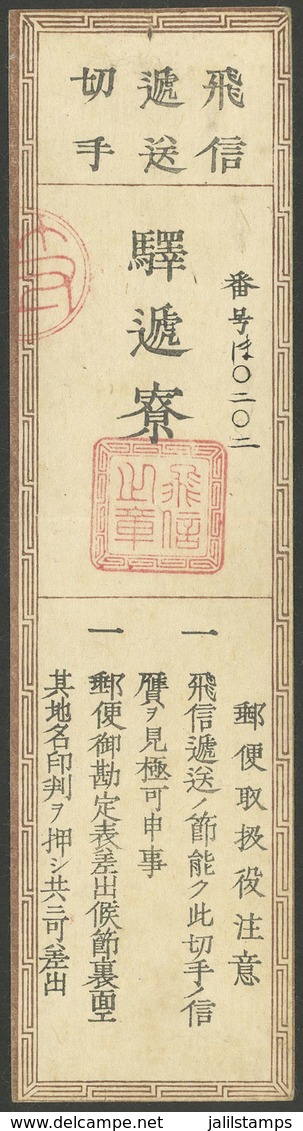 飛信
遞送
切手
番号ほ〇二〇二
驛遞寮
飛信
之章
郵便取扱役注意
一 飛信遞送ノ節能ク此切手ノ信
贋ヲ見極可申事
一 郵便御勘定表差出候節裏面エ
其地名印判ヲ押シ共ニ可差出
www.delcampe.net
jalilstamps